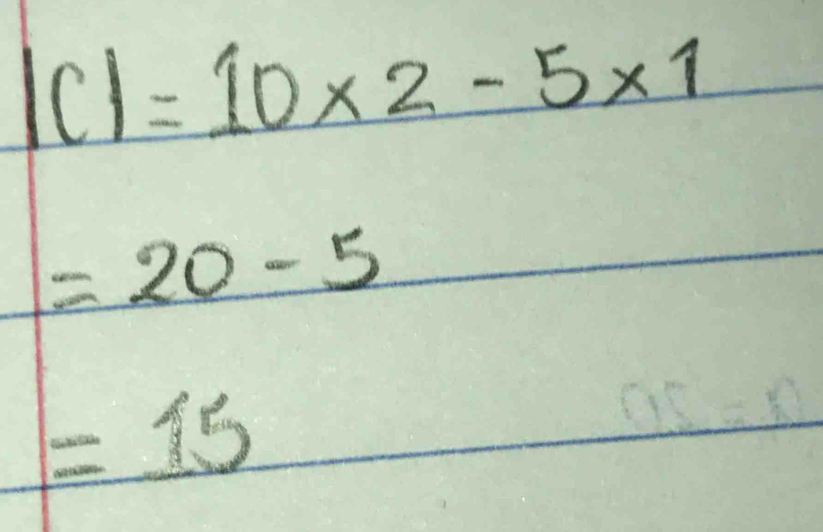 |C| = 10 × 2 - 5 × 1
= 20 - 5
= 15